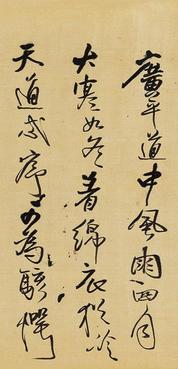 廣平道中風雨四月
大寒如冬着綿衣猶冷
天道弐序為駭愕